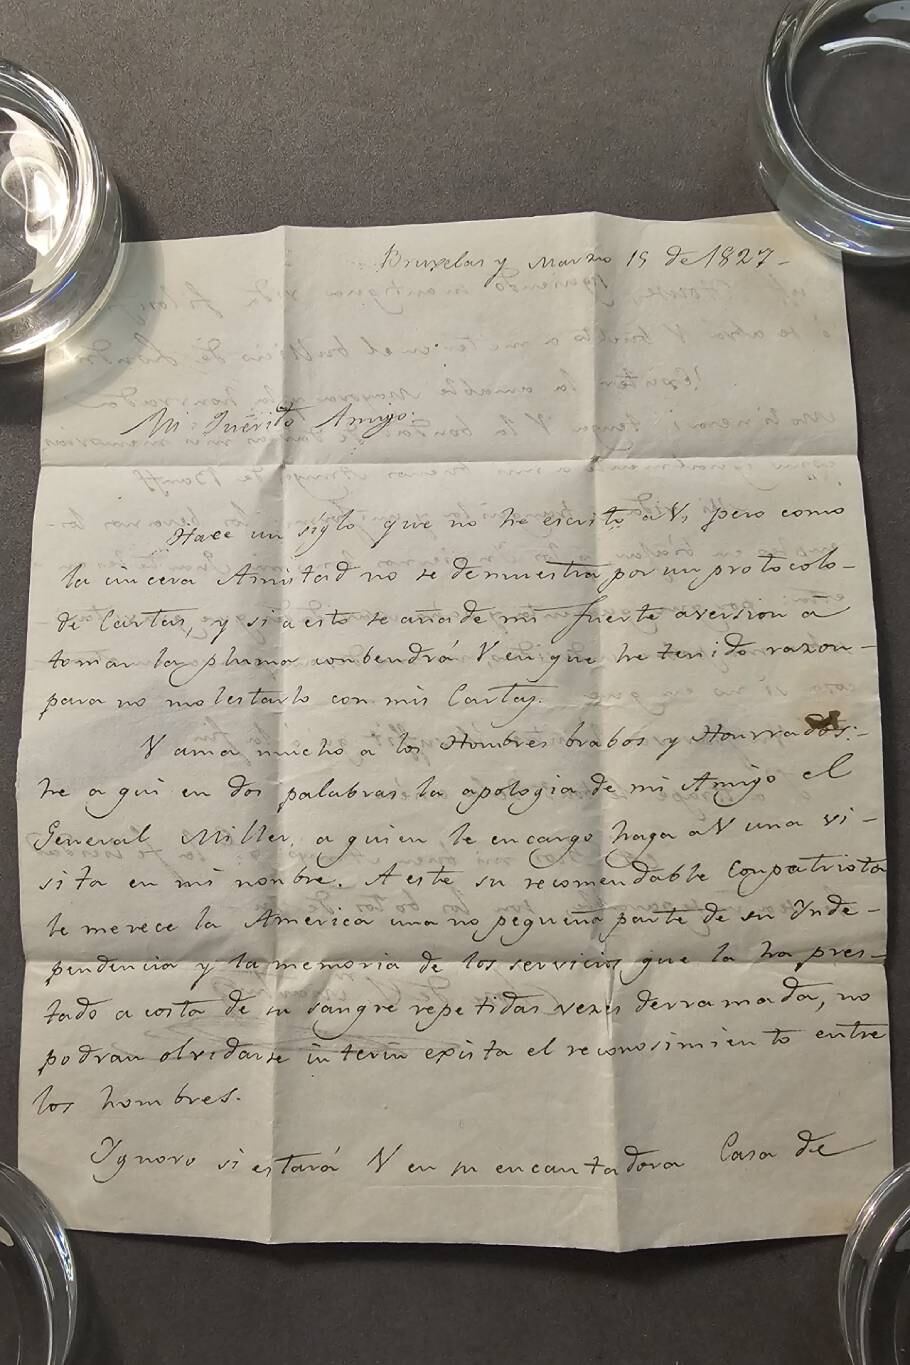 Bruxelas y Marzo 19 de 1827-
Mi Querito Amigo.
Hace un siglo que no he escrito a V, pero como
la sincera Amistad no se demuestra por un protocolo-
de Cartas, y si a esto se añade mi fuerte aversion a
tomar la pluma conbendrá V en que he tenido razon-
para no molestarlo con mis Cartas.
V ama mucho a los Hombres brabos y Honrrados:-
he aqui en dos palabras la apologia de mi Amigo el
General Miller, a quien le encargo haga a V una vi-
sita en mi nonbre. A este su recomendable Conpatriota
le merece la America una no pequeña parte de su Ynde-
pendencia y la memoria de los servicios que la ha pres-
tado a costa de su sangre repetidas vezes derramada, no
podran olvidarse interin exista el reconosimiento entre
los hombres.
Ygnoro si estará V en su encantadora Casa de